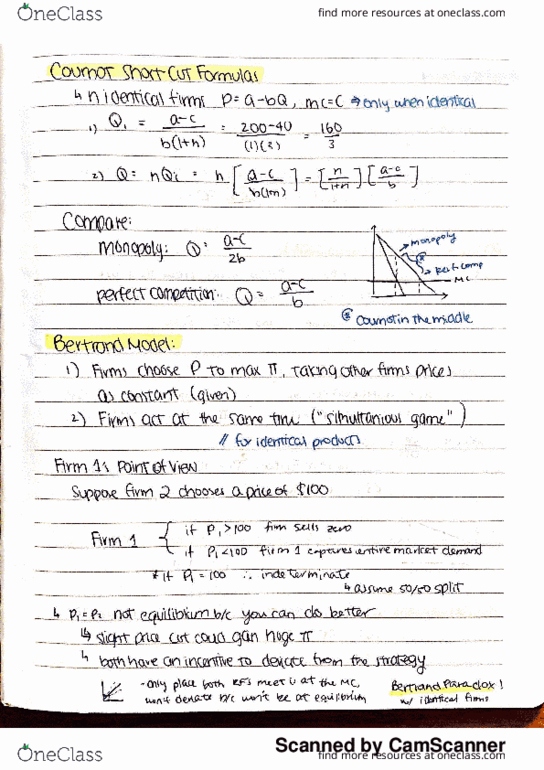 OneClass
find more resources at oneclass.com
Cournot Short-Cut Formulas
↳ n identical firms P=a-bQ, MC=C → only when identical
1) Q₁ = a-c / b(1+n) = 200-40 / (1)(3) = 160 / 3
2) Q = nQi = n [a-c / b(1+n)] = [n / 1+n] [a-c / b]
Compare:
monopoly: Q = a-c / 2b
monopoly
perf. comp
MC
perfect competition: Q = a-c / b
Cournot in the middle
Bertrand Model:
1) Firms choose P to max π, taking other firms prices
as constant (given)
2) Firms act at the same time ("simultanious game")
// for identical products
Firm 1's Point of View
Suppose firm 2 chooses a price of $100
Firm 1 { if P₁>100 firm sells zero
if P₁<100 firm 1 captures entire market demand
* if P₁ = 100 ∴ indeterminate
↳ assume 50/50 split
↳ P₁=P₂ not equilibrium b/c you can do better
↳ slight price cut could gain huge π
↳ both have an incentive to deviate from the strategy
- only place both RFs meet is at the MC,
won't deviate b/c won't be at equilibrium
Bertrand Paradox!
w/ identical firms
Scanned by CamScanner
OneClass
find more resources at oneclass.com